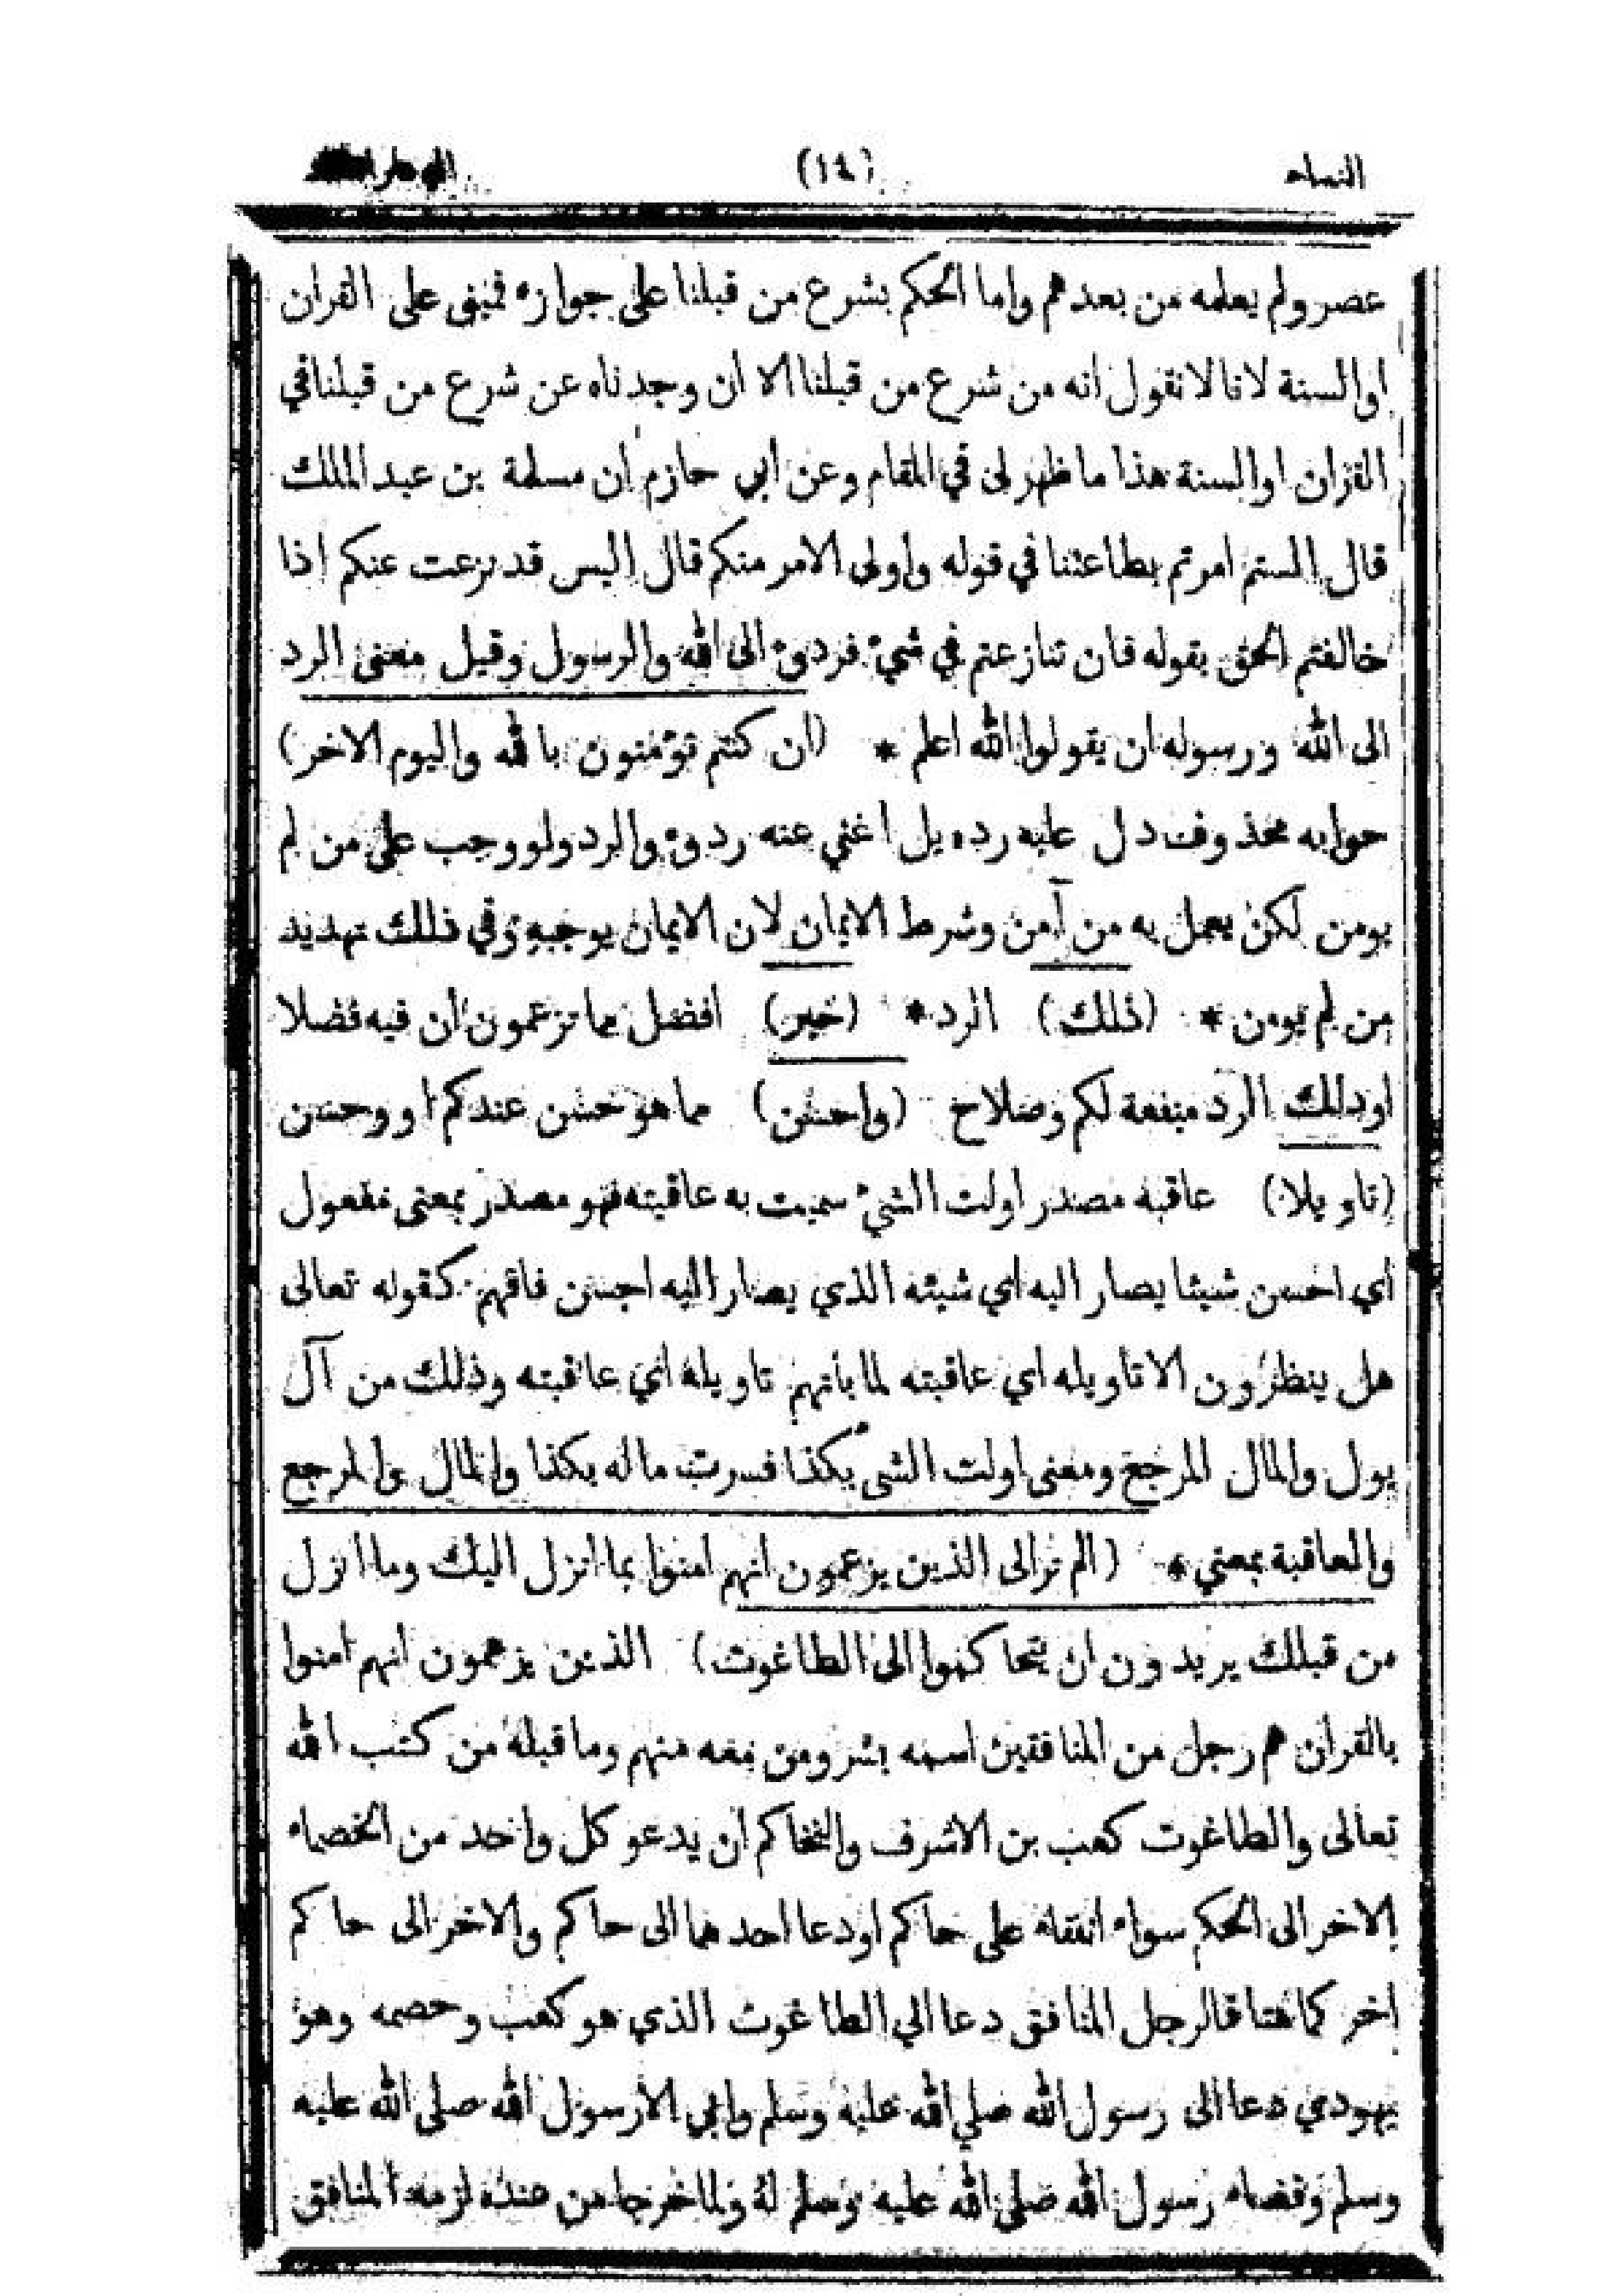 النساء (١٤)
عصر ولم يعلمه من بعدهم واما الحكم بشرع من قبلنا على جوازه فمبنى على القرآن
او السنة لانا لا نقول انه من شرع من قبلنا الا ان وجدناه عن شرع من قبلنا في
القرآن او السنة هذا ما ظهر لى في المقام وعن ابي حازم ان مسلمة بن عبد الملك
قال الستم امرتم بطاعتنا في قوله واولى الامر منكم قال اليس قد نزعت عنكم اذا
خالفتم الحق بقوله فان تنازعتم في شيء فردوه الى الله والرسول وقيل معنى الرد
الى الله ورسوله ان يقولوا الله اعلم * (ان كنتم تؤمنون بالله واليوم الاخر)
جوابه محذوف دل عليه رده بل اغنى عنه ردوه والرد ولو وجب على من لم
يومن لكن يعمل به من آمن وشرط الايمان لان الايمان يوجبه وفي ذلك تهديد
من لم يومن * (ذلك) الرد * (خير) افضل مما تزعمون ان فيه فضلا
او ذلك الرد منفعة لكم وصلاح (واحسن) مما هو حسن عندكم او وحسن
(تاويلا) عاقبة مصدر اولت الشيء سميت به عاقبته فهو مصدر بمعنى مفعول
اي احسن شيئا يصار اليه اي شيئه الذي يصار اليه احسن فافهم كقوله تعالى
هل ينظرون الا تاويله اي عاقبته لما يأتهم تاويله اي عاقبته وذلك من آل
يول والمال المرجع ومعنى اولت الشىء بكذا فسرت ماله بكذا والمال والمرجع
والعاقبة بمعنى * (الم تر الى الذين يزعمون انهم امنوا بما انزل اليك وما انزل
من قبلك يريدون ان يتحاكموا الى الطاغوت) الذين يزعمون انهم امنوا
بالقرآن هم رجل من المنافقين اسمه بشر ومن معه منهم وما قبله من كتب الله
تعالى والطاغوت كعب بن الاشرف والتحاكم ان يدعو كل واحد من الخصماء
الاخر الى الحكم سواء اتفقا على حاكم او دعا احدهما الى حاكم والاخر الى حاكم
اخر كما هنا فالرجل المنافق دعا الى الطاغوت الذي هو كعب وخصمه وهو
يهودي دعا الى رسول الله صلى الله عليه وسلم وابي الا رسول الله صلى الله عليه
وسلم وقضاه رسول الله صلى الله عليه وسلم له ولما خرجا من عنده لزمه المنافق